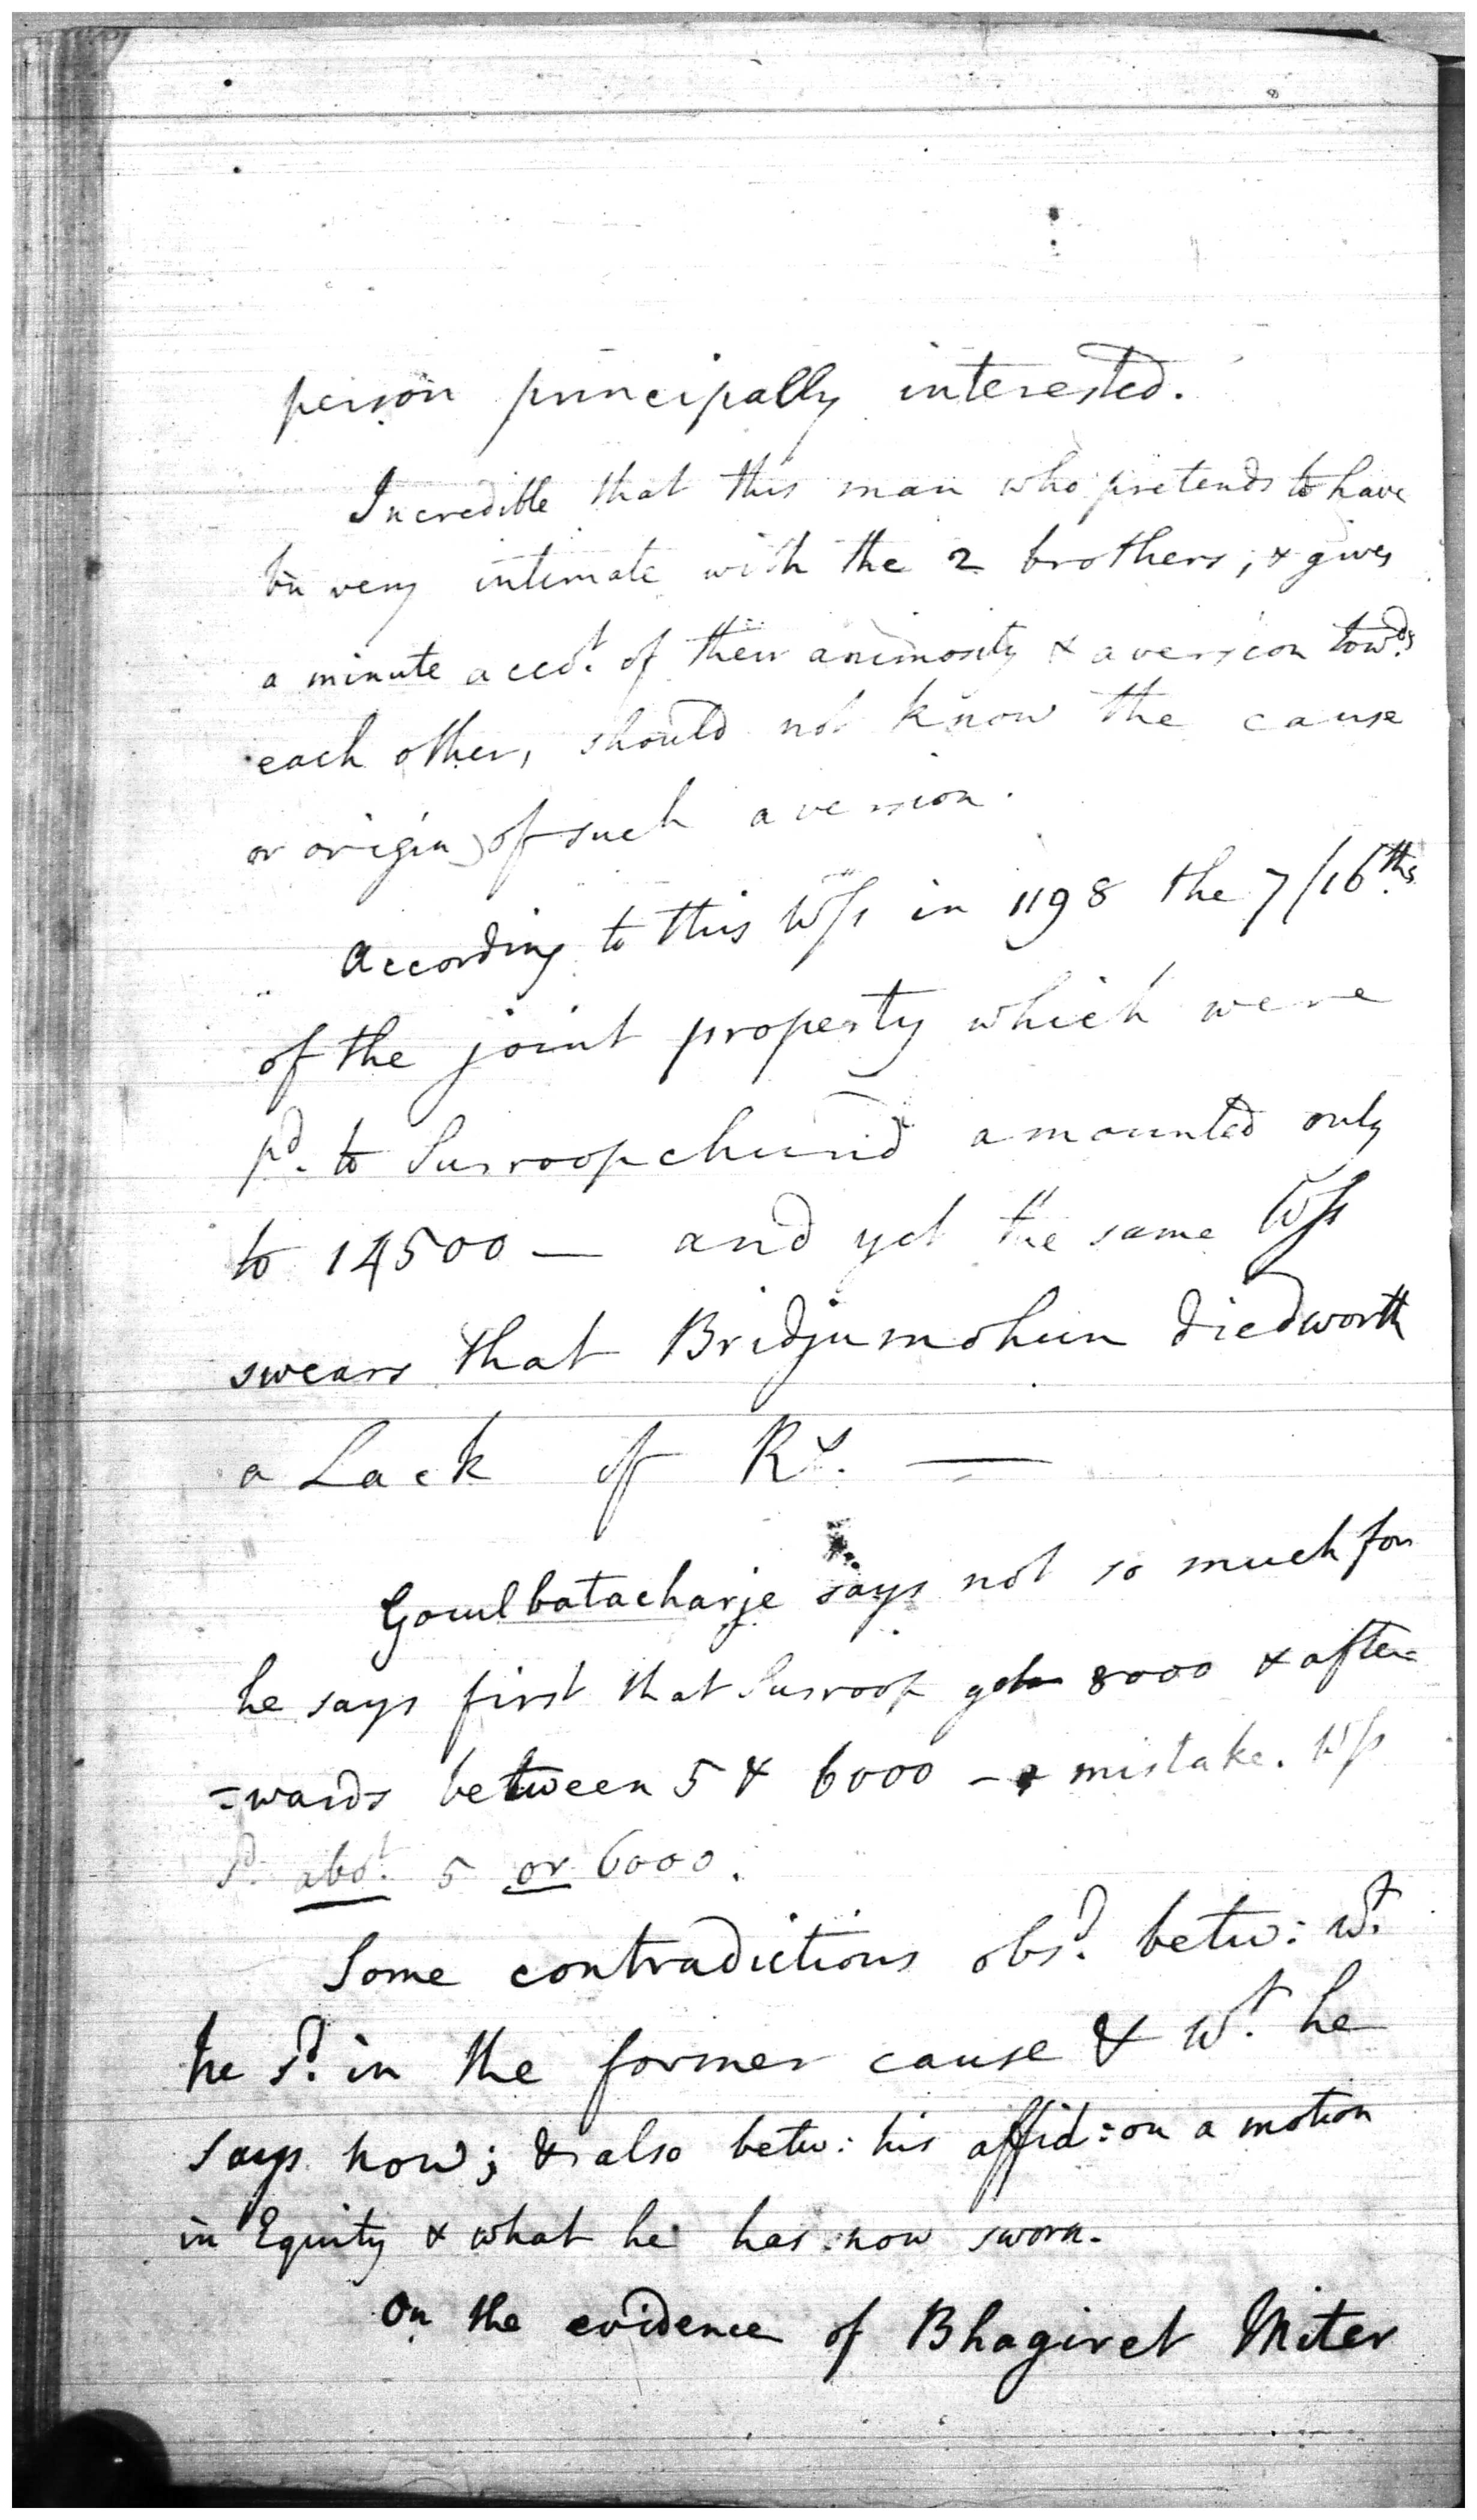 person principally interested.
Incredible that this man who pretends to have
bn very intimate with the 2 brothers, & gives
a minute acco.t of their animosity & aversion tow.ds
each other, should not know the cause
or origin of such aversion.
According to this W/s in 1198 the 7/16.ths
of the joint property which were
p.d to Surroopchund amounted only
to 14500 — and yet the same W/s
swears that Bridjumohun died worth
a Lack of R.s —
Goculbatacharje says not so much for
he says first that Surroop got 8000 & after=
=wards between 5 & 6000 — mistake. W/s
s.d abo.t 5 or 6000.
Some contradictions obs.d betw: w.t
he s.d in the former cause & w.t he
says now; & also betw: his affid: on a motion
in Equity & what he has now sworn.
On the evidence of Bhagiret Miter